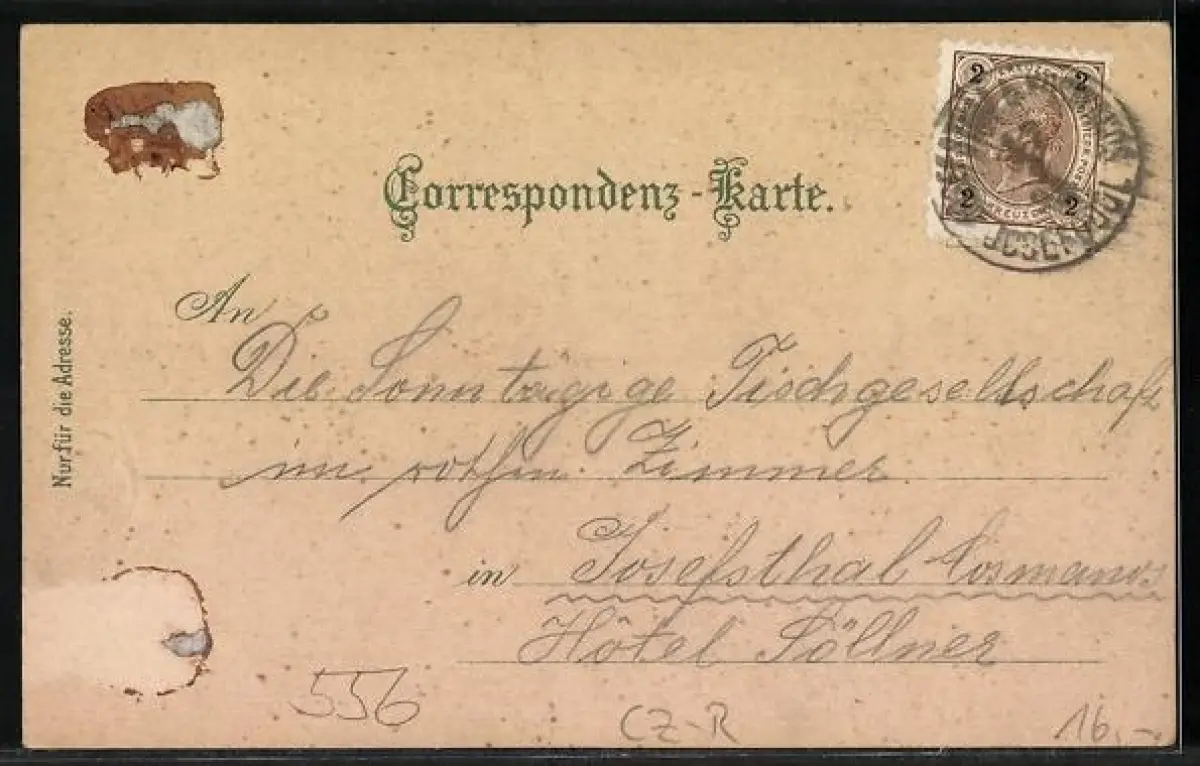 Correspondenz-Karte.
2 2
2 2
An
Die Sonntagige Tischgesellschaft
im rothen Zimmer
in Josefsthal Cosmanos
Hôtel Söllner
Nur für die Adresse.
556
CZ-R
16.-